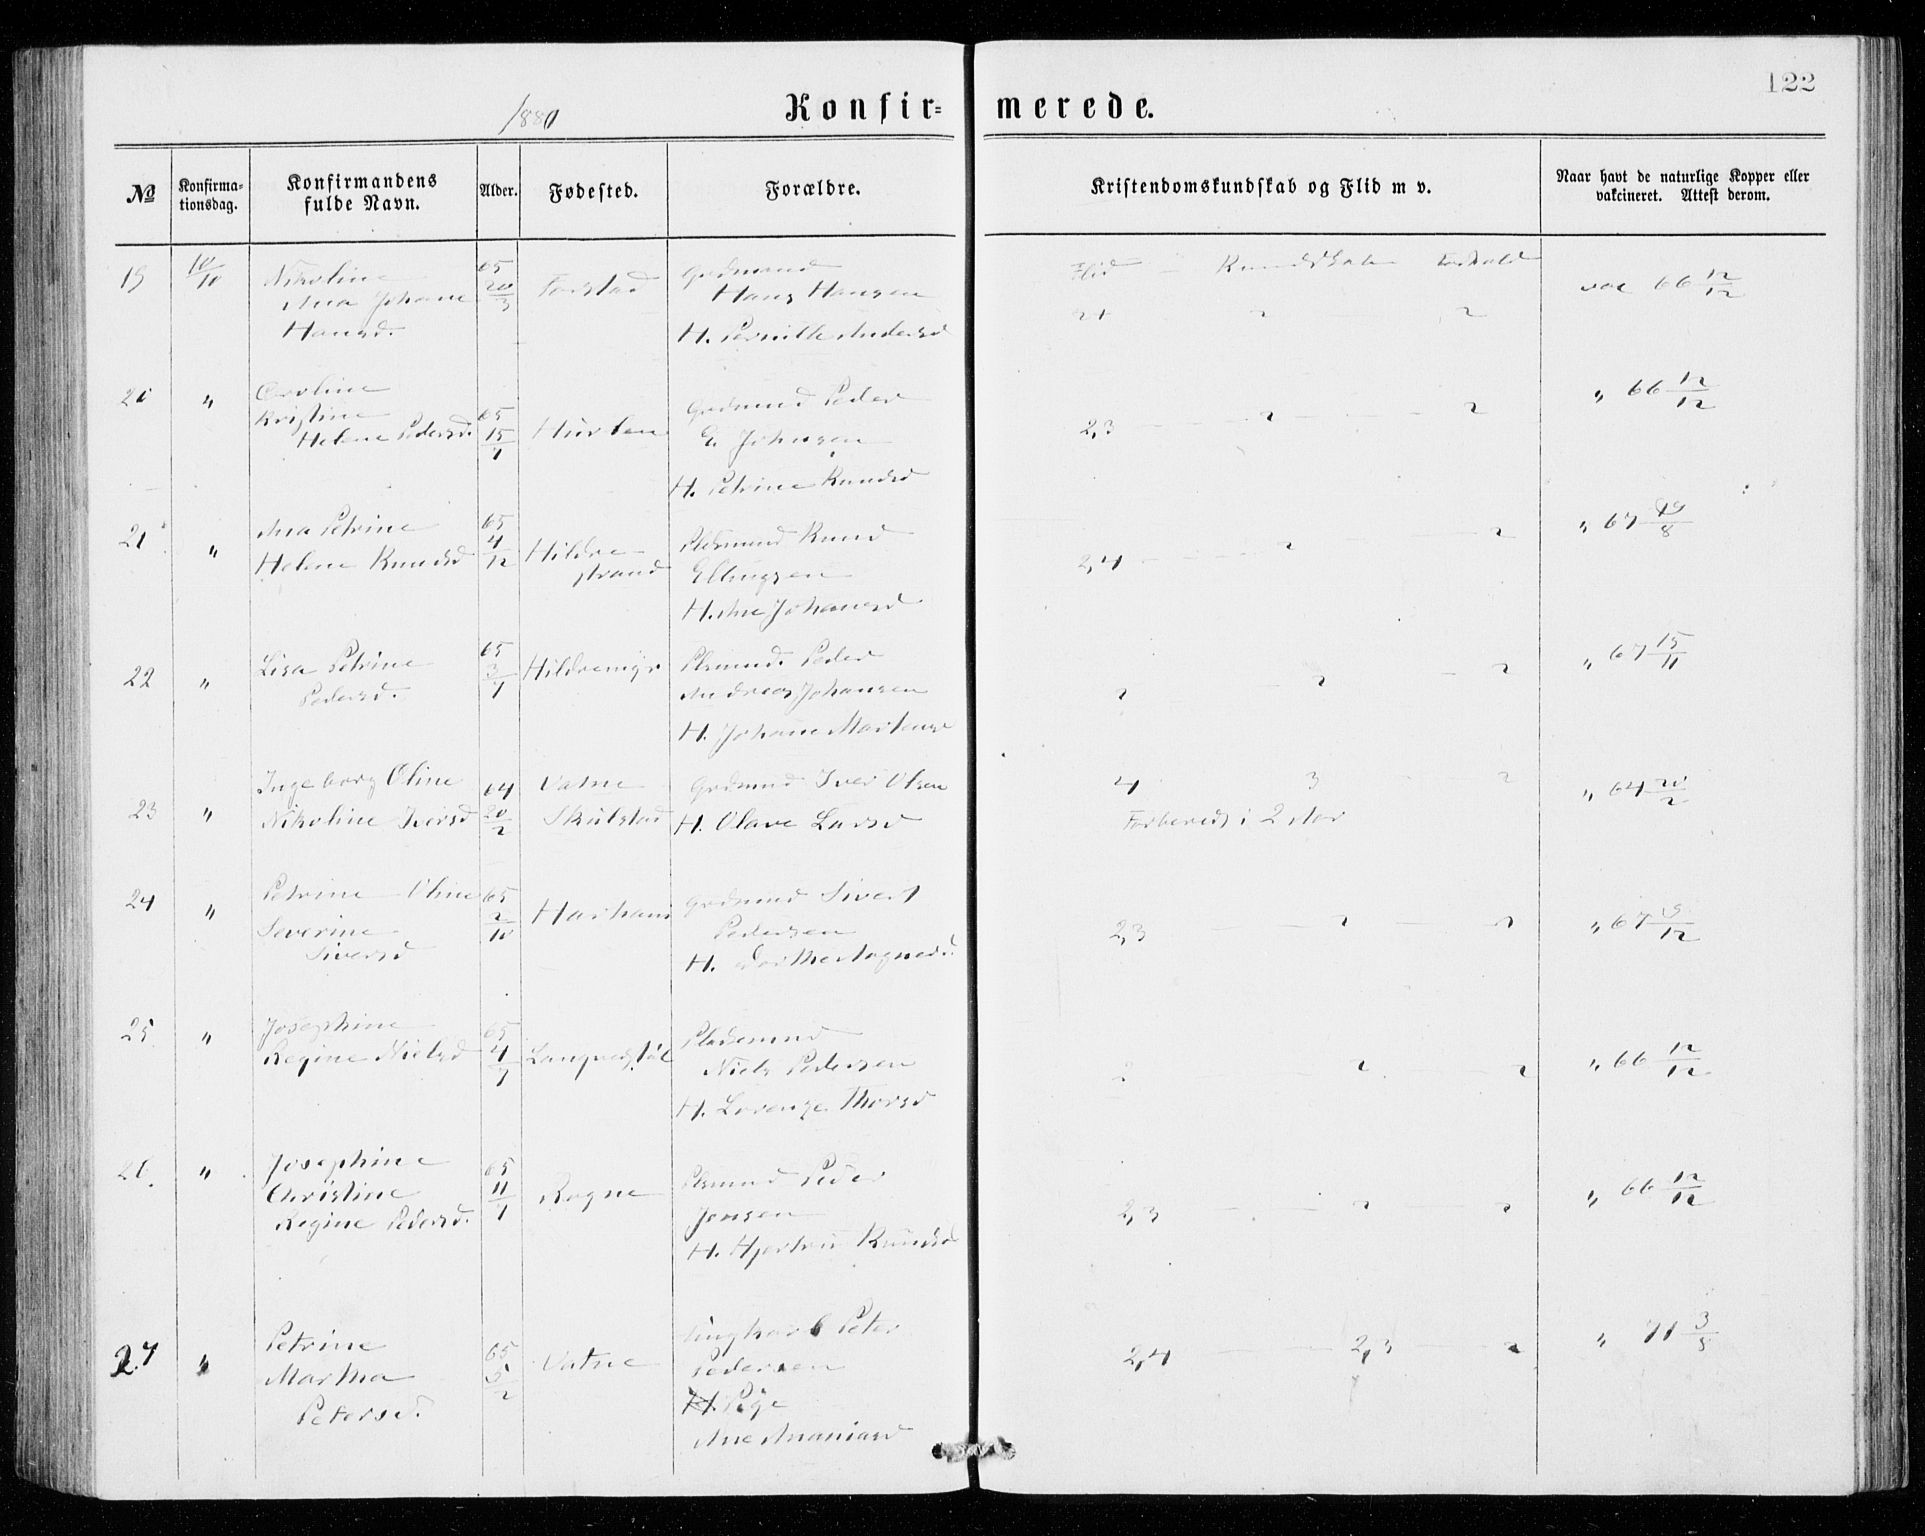 122
1880
Konfir-
merede.
№
Konfirma-
tionsdag.
Konfirmandens
fulde Navn.
Alder.
Fødested.
Forældre.
Kristendomskundskab og Flid m v.
Naar havt de naturlige Kopper eller
vakcineret. Attest derom.
19 10/10 Nikoline
Ana Johane
Hansd.
65 20/3
Gaardmand
Hans Hansen
H. Pernille Andersd
Flid Kundskab Forhold
2 2
vac 66 12/12
20 " Caroline
Kristine
Helene Pedersd.
65 15/1
Grdmand Peder
E. Johnsen
H. Petrine Knudsd
2,3 2 2
" 66 12/12
21 " Ana Petrine
Helene Knudsd
65 4/12
Hildre
strand
Pladsmand Knud
Ellingsen
H. Ane Johansd
2,4 2 2
" 67 19/8
22 " Lisa Petrine
Pedersd.
65 3/1
Hildremyr
Plsmand Peder
Andreas Johansen
H. Johane Martensd
2 2 2
" 67 15/11
23 " Ingeborg Oline
Nikoline Iversd
64 20/2
Vatne
Skulstad
Grdmand Iver Olsen
H. Olave Larsd
4 3 2
Forbered i 2 Aar
" 64 20/2
24 " Petrine Oline
Severine
Siversd
65 2/10
Harham
Grdmand Sivert
Pedersen
H. Dorthe Aagesd.
2,3 2 2
" 67 /12
25 " Josephine
Regine Nielsd
65 4/1
Pladsmand
Niels Pedersen
H. Lorense Thorsd
2 2 2
" 66 12/12
26. " Josephine
Christine
Regine Pedersd.
65 11/1
Rogne
Plsmand Peder
Jensen
H. Knudsd
2,3 2 2
" 66 12/12
27 " Petrine
Martha
Petersd.
65 5/2
Vatne
Ungkarl Peter
Pedersen
Pige
Ane Ananiasd
2,4 2,3 2
" 71 3/8